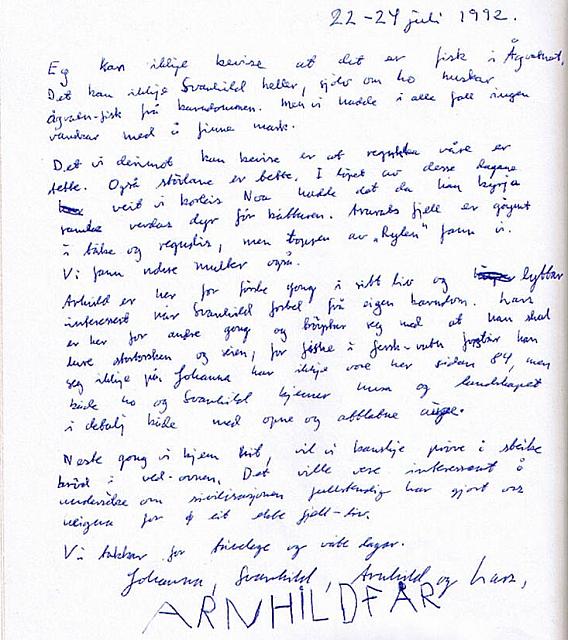 22-24 juli 1992.
Eg kan ikkje bevise at det er fisk i Ågvatnet.
Det kan ikkje Svanhild heller, sjølv om ho huskar
Ågvatn-fisk frå barndommen. Men vi hadde i alle fall ingen
vanskar med å finne mark.
Det vi derimot kan bevise er at regntøya våre er
tette. Også støvlane er tette. I løpet av desse dagane
veit vi korleis Noa hadde det da han byrja
samle verdas dyr før båtturen. Ararats fjell er gøymt
i tåke og regndis, men toppen av "Rylen" fann vi.
Vi fann også.
Arnhild er her for første gong i sitt liv og lyttar
interessert når Svanhild fortel frå eigen barndom. Lars
er her for andre gong og trøystar seg med at han skal
til stortorsken og seien, for fiske i fersk-vatn forstår han
seg ikkje på. Johanna har ikkje vore her sidan 84, men
både ho og Svanhild kjenner og landskapet
i detalj både med opne og attletne auge.
Neste gong vi kjem hit, vil vi kanskje prøve å steike
brød i ved-omnen. Det ville vere interessant å
undersøke om sivilisasjonen fullstendig har gjort oss
ueigna for eit ekte fjell-liv.
Vi takkar for trivelege og våte dagar.
Johanna, Svanhild, Arnhild og Lars,
ARNHILD FAR